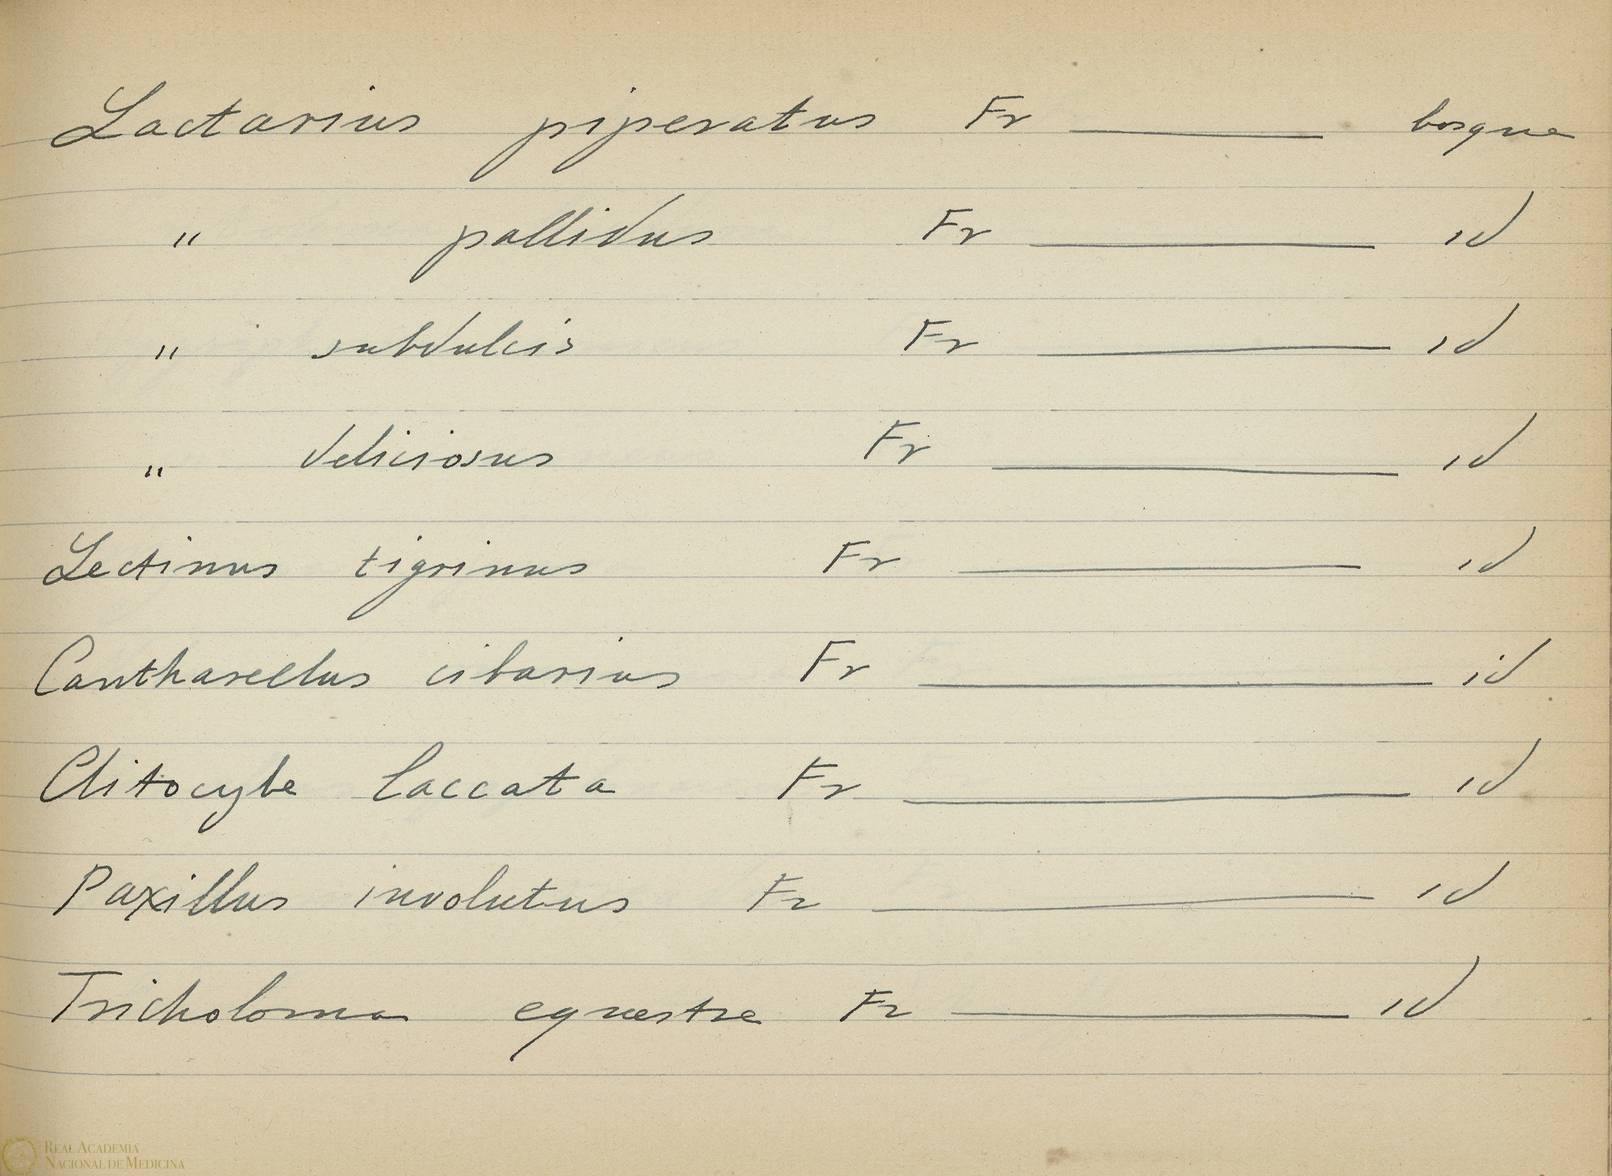 Lactarius piperatus Fr ——— bosque
" pallidus Fr ——— id
" subdulcis Fr ——— id
" deliciosus Fr ——— id
Lectinus tigrinus Fr ——— id
Cantharellus cibarius Fr ——— id
Clitocybe laccata Fr ——— id
Paxillus involutus Fr ——— id
Tricholoma equestre Fr ——— id
REAL ACADEMIA
NACIONAL DE MEDICINA